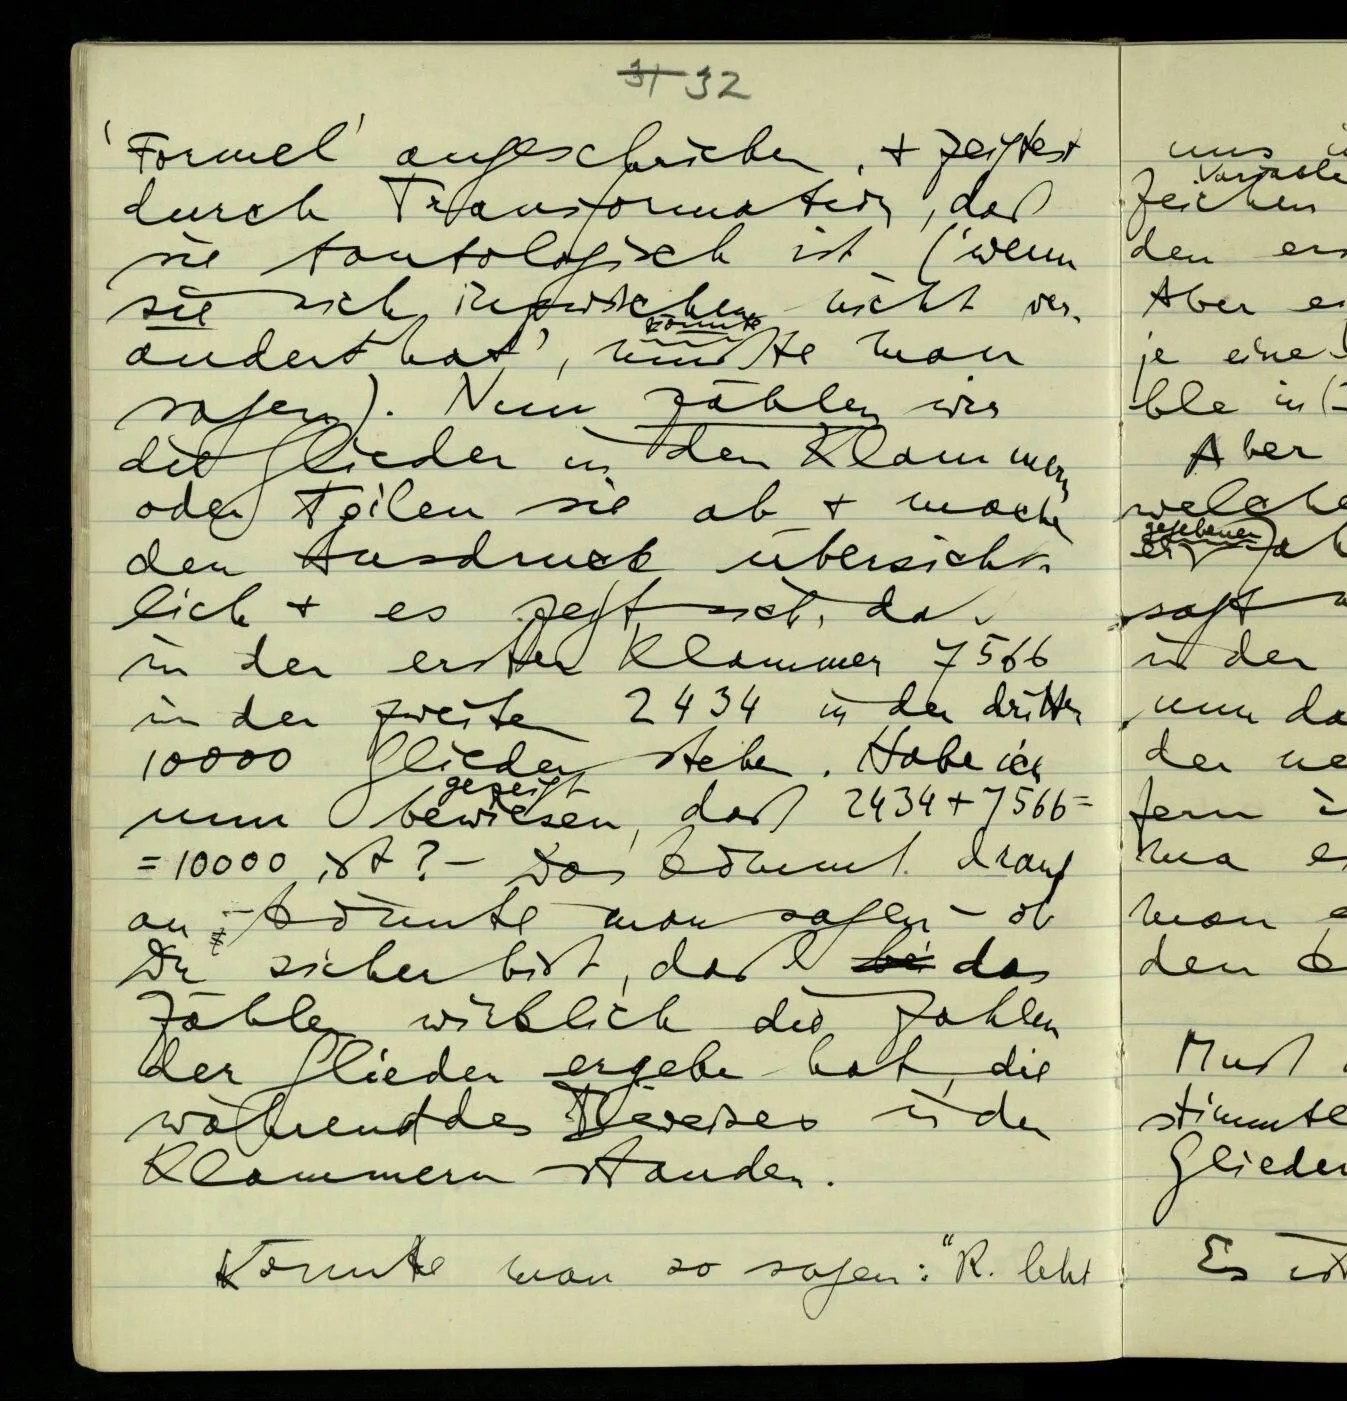 31 32
'Formel' angeschrieben, + zeigtest
durch Transformation, daß
sie tautologisch ist ('wenn
sie sich inzwischen nicht ver-
ändert hat',
könnte
müßte man
sagen). Nun zählen wir
die Glieder in den Klammern
oder Teilen sie ab + machen
den Ausdruck übersicht-
lich + es zeigt sich, daß
in der ersten Klammer 7566
in der zweiten 2434 in der dritten
10000 Glieder stehen. Habe ich
gezeigt
nun bewiesen, daß 2434+7566=
=10000 ist? – Das kommt drauf
an – könnte man sagen – ob
Du sicher bist, daß bei das
Zählen wirklich die Zahlen
der Glieder ergeben hat, die
während des Beweises in den
Klammern standen.
Könnte man so sagen: "R. lehrt
uns
Variable
Zeichen
den
Aber
je eine
ble in
Aber
welche
gegebenen
sagt
in der
nun
der
fern
man
den
Muß
stimmte
Glieder
Es ist